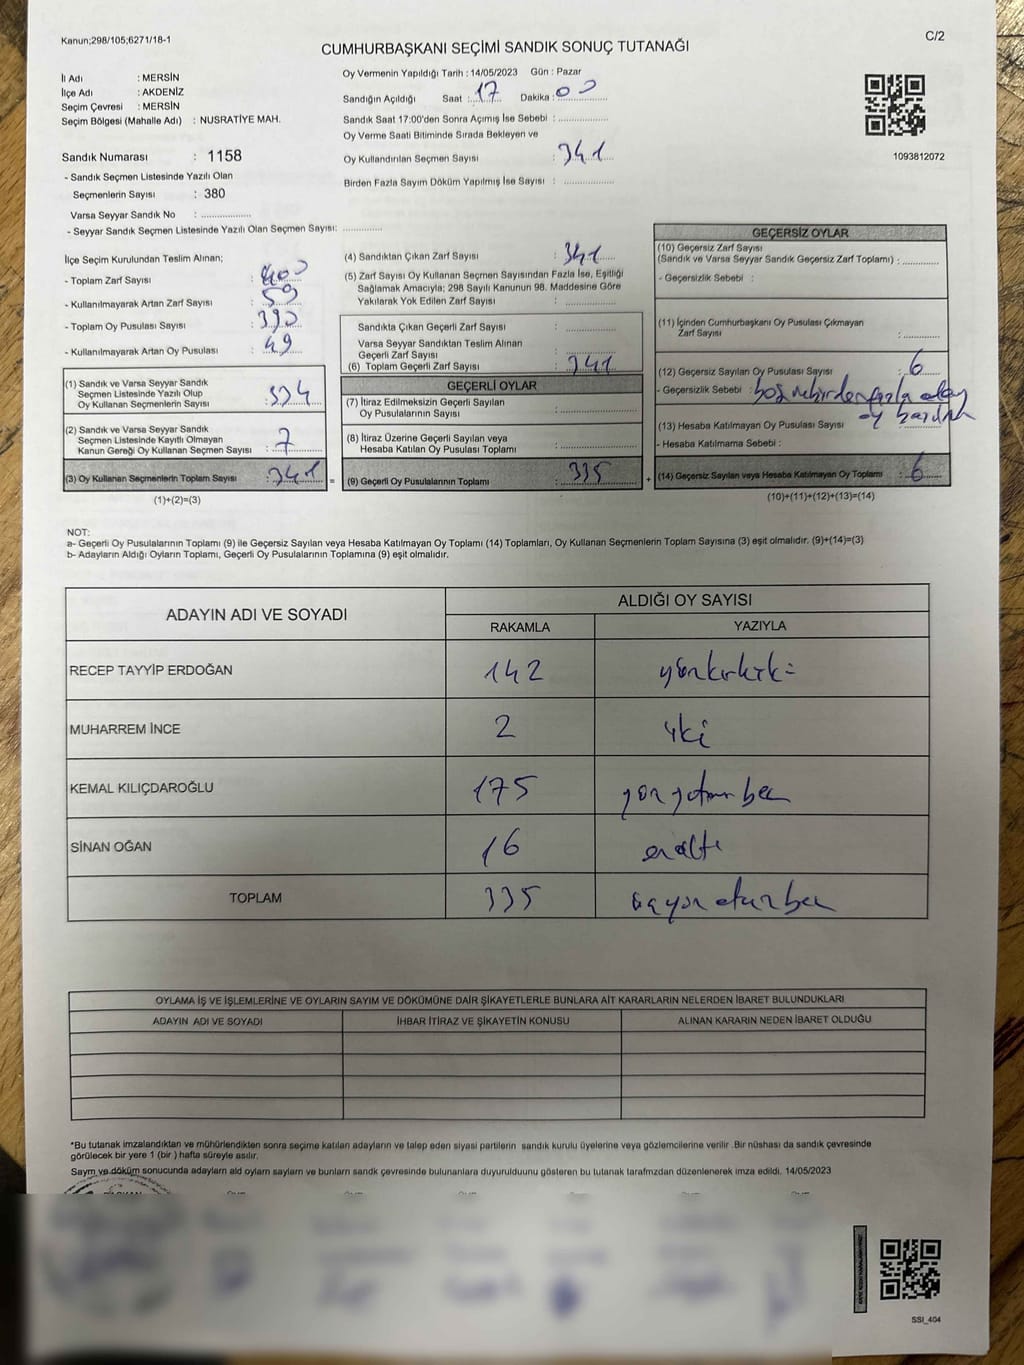 Kanun;298/105;6271/18-1
C/2
CUMHURBAŞKANI SEÇİMİ SANDIK SONUÇ TUTANAĞI
İl Adı : MERSİN
İlçe Adı : AKDENİZ
Seçim Çevresi : MERSİN
Seçim Bölgesi (Mahalle Adı) : NUSRATİYE MAH.
Sandık Numarası : 1158
- Sandık Seçmen Listesinde Yazılı Olan
Seçmenlerin Sayısı : 380
Varsa Seyyar Sandık No : ..................
- Seyyar Sandık Seçmen Listesinde Yazılı Olan Seçmen Sayısı: ..............
Oy Vermenin Yapıldığı Tarih : 14/05/2023 Gün : Pazar
Sandığın Açıldığı Saat : 17 Dakika : 00
Sandık Saat 17:00'den Sonra Açımış İse Sebebi : ..................
Oy Verme Saati Bitiminde Sırada Bekleyen ve
Oy Kullandırılan Seçmen Sayısı : 341
Birden Fazla Sayım Döküm Yapılmış İse Sayısı : ..................
1093812072
İlçe Seçim Kurulundan Teslim Alınan;
- Toplam Zarf Sayısı : 400
- Kullanılmayarak Artan Zarf Sayısı : 59
- Toplam Oy Pusulası Sayısı : 390
- Kullanılmayarak Artan Oy Pusulası : 49
(1) Sandık ve Varsa Seyyar Sandık
Seçmen Listesinde Yazılı Olup
Oy Kullanan Seçmenlerin Sayısı : 334
(2) Sandık ve Varsa Seyyar Sandık
Seçmen Listesinde Kayıtlı Olmayan
Kanun Gereği Oy Kullanan Seçmen Sayısı : 7
(3) Oy Kullanan Seçmenlerin Toplam Sayısı : 341 =
(1)+(2)=(3)
(4) Sandıktan Çıkan Zarf Sayısı : 341
(5) Zarf Sayısı Oy Kullanan Seçmen Sayısından Fazla İse, Eşitliği
Sağlamak Amacıyla; 298 Sayılı Kanunun 98. Maddesine Göre
Yakılarak Yok Edilen Zarf Sayısı : ..................
Sandıkta Çıkan Geçerli Zarf Sayısı : ..................
Varsa Seyyar Sandıktan Teslim Alınan
Geçerli Zarf Sayısı : ..................
(6) Toplam Geçerli Zarf Sayısı : 341
GEÇERLİ OYLAR
(7) İtiraz Edilmeksizin Geçerli Sayılan
Oy Pusulalarının Sayısı : ..................
(8) İtiraz Üzerine Geçerli Sayılan veya
Hesaba Katılan Oy Pusulası Toplamı : ..................
(9) Geçerli Oy Pusulalarının Toplamı : 335 +
GEÇERSİZ OYLAR
(10) Geçersiz Zarf Sayısı
(Sandık ve Varsa Seyyar Sandık Geçersiz Zarf Toplamı) : ..............
- Geçersizlik Sebebi :
(11) İçinden Cumhurbaşkanı Oy Pusulası Çıkmayan
Zarf Sayısı : ..............
(12) Geçersiz Sayılan Oy Pusulası Sayısı : 6
- Geçersizlik Sebebi : boş ve birden fazla
oy
(13) Hesaba Katılmayan Oy Pusulası Sayısı : ..............
- Hesaba Katılmama Sebebi :
(14) Geçersiz Sayılan veya Hesaba Katılmayan Oy Toplamı : 6
(10)+(11)+(12)+(13)=(14)
NOT:
a- Geçerli Oy Pusulalarının Toplamı (9) ile Geçersiz Sayılan veya Hesaba Katılmayan Oy Toplamı (14) Toplamları, Oy Kullanan Seçmenlerin Toplam Sayısına (3) eşit olmalıdır. (9)+(14)=(3)
b- Adayların Aldığı Oyların Toplamı, Geçerli Oy Pusulalarının Toplamına (9) eşit olmalıdır.
ADAYIN ADI VE SOYADI ALDIĞI OY SAYISI
RAKAMLA YAZIYLA
RECEP TAYYİP ERDOĞAN 142 yüzkırkiki
MUHARREM İNCE 2 iki
KEMAL KILIÇDAROĞLU 175 yüzyetmişbeş
SİNAN OĞAN 16 onaltı
TOPLAM 335 üçyüzotuzbeş
OYLAMA İŞ VE İŞLEMLERİNE VE OYLARIN SAYIM VE DÖKÜMÜNE DAİR ŞİKAYETLERLE BUNLARA AİT KARARLARIN NELERDEN İBARET BULUNDUKLARI
ADAYIN ADI VE SOYADI İHBAR İTİRAZ VE ŞİKAYETİN KONUSU ALINAN KARARIN NEDEN İBARET OLDUĞU
*Bu tutanak imzalandıktan ve mühürlendikten sonra seçime katılan adayların ve talep eden siyasi partilerin sandık kurulu üyelerine veya gözlemcilerine verilir .Bir nüshası da sandık çevresinde
görülecek bir yere 1 (bir ) hafta süreyle asılır.
Sayım ve döküm sonucunda adayların ald oyların sayların ve bunların sandk çevresinde bulunanlara duyurulduunu gösteren bu tutanak tarafmzdan düzenlenerek imza edildi. 14/05/2023
SSI_404